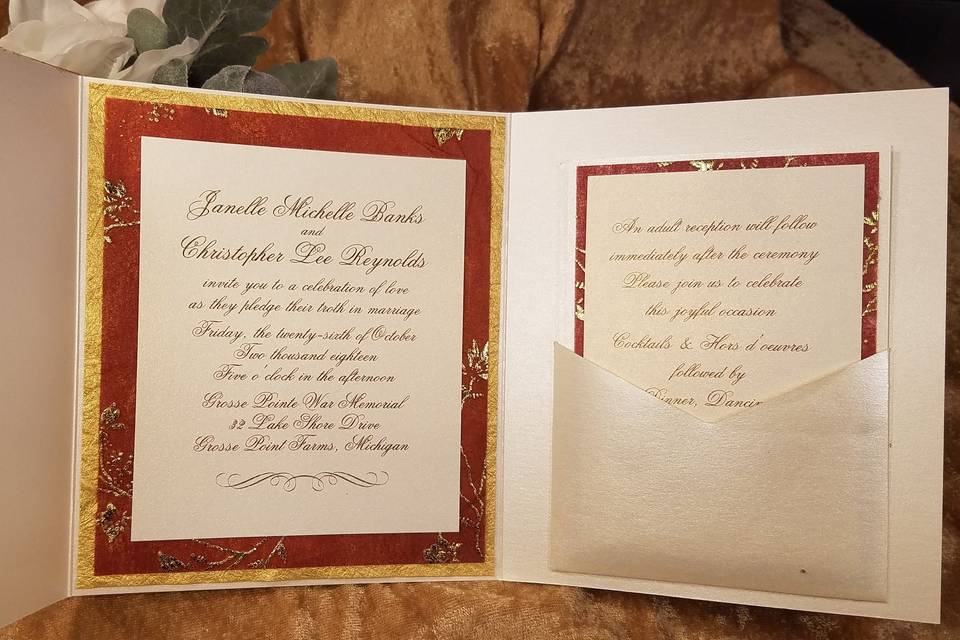 Janelle Michelle Banks
and
Christopher Lee Reynolds
invite you to a celebration of love
as they pledge their troth in marriage
Friday, the twenty-sixth of October
Two thousand eighteen
Five o'clock in the afternoon
Grosse Pointe War Memorial
32 Lake Shore Drive
Grosse Point Farms, Michigan
An adult reception will follow
immediately after the ceremony
Please join us to celebrate
this joyful occasion
Cocktails & Hors d'oeuvres
followed by
Dinner,